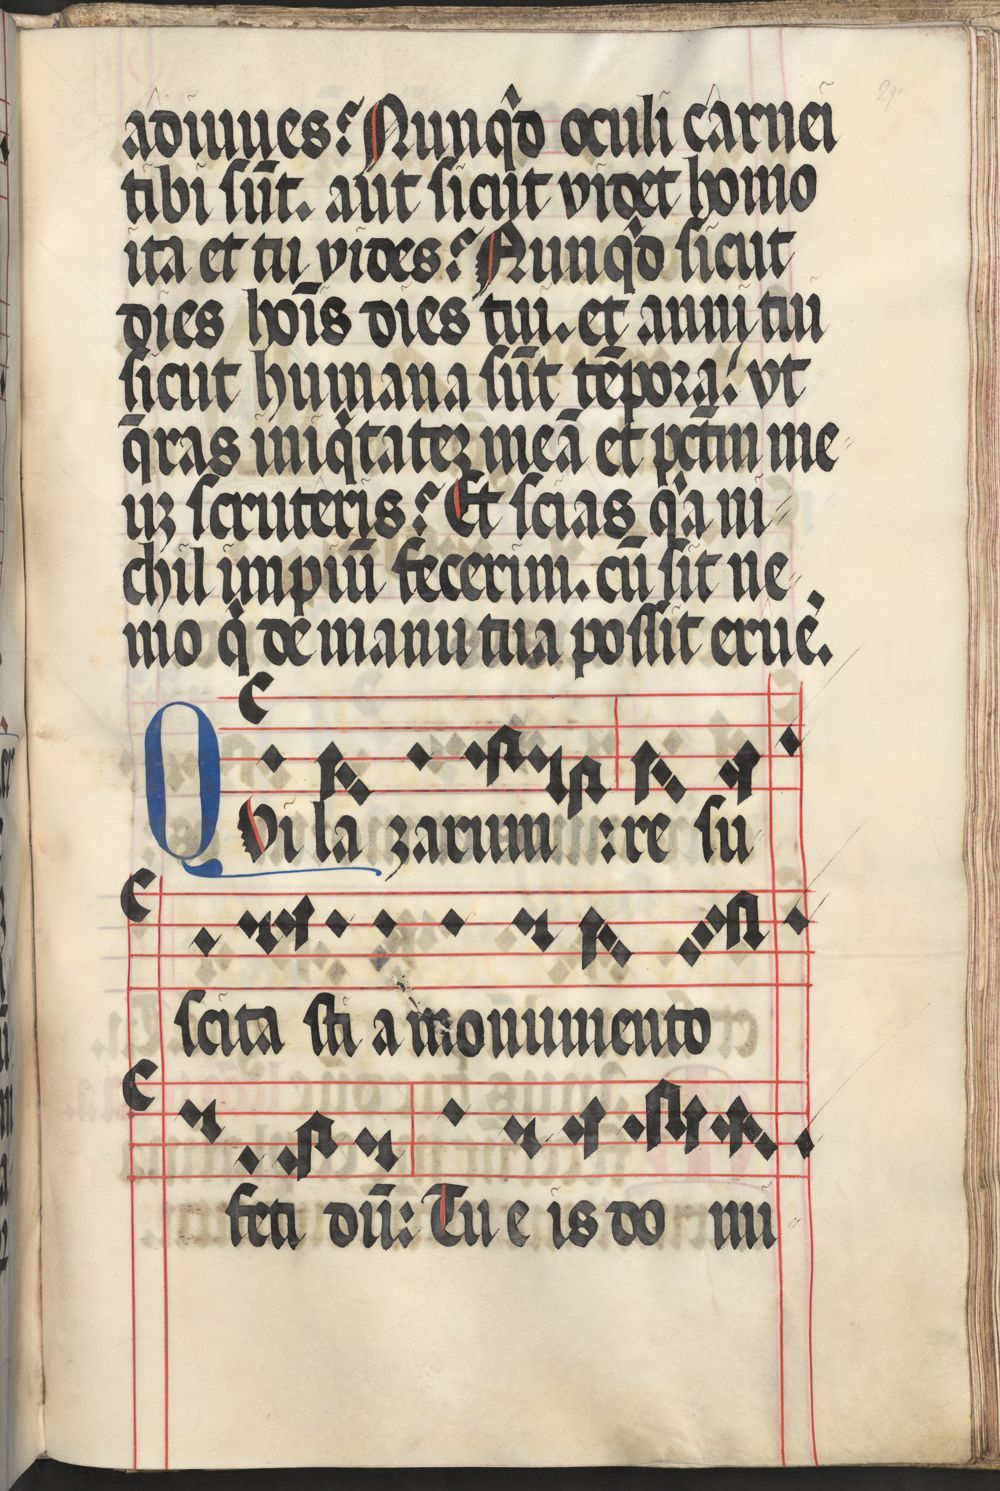 adiuues? Nunqͥd oculi carnei
tibi sūt. aut sicut videt homo
ita et tu vides? Nunqͥd sicut
dies hoīs dies tui. et anni tui
sicut humana sūt tēpora! vt
q̄ras iniqͥtateʒ meā et pctm̄ me-
uʒ scruteris? Et scias qͥa ni-
chil impiū fecerim. cū sit ne-
mo qͥ de manu tua possit eruē.
QVi la zarum :re su-
scita sti a monumento
feti dū: Tu e is do mi-